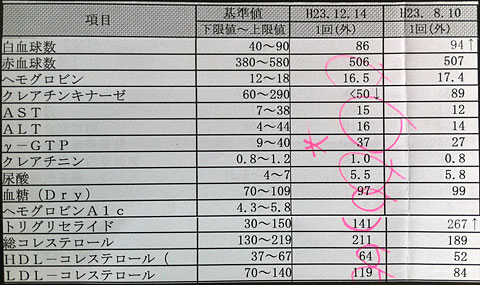 項目 基準値 H23.12.14 H23. 8.10
下限値～上限値 1回(外) 1回(外)
白血球数 40～90 86 94↑
赤血球数 380～580 506 507
ヘモグロビン 12～18 16.5 17.4
クレアチンキナーゼ 60～290 <50↓ 89
AST 7～38 15 12
ALT 4～44 16 14
γ-GTP 9～40 37 27
クレアチニン 0.8～1.2 1.0 0.8
尿酸 4～7 5.5 5.8
血糖（Dry） 70～109 97 99
ヘモグロビンA1c 4.3～5.8
トリグリセライド 30～150 141 267↑
総コレステロール 130～219 211 189
HDL-コレステロール（ 37～67 64 52
LDL-コレステロール 70～140 119 84